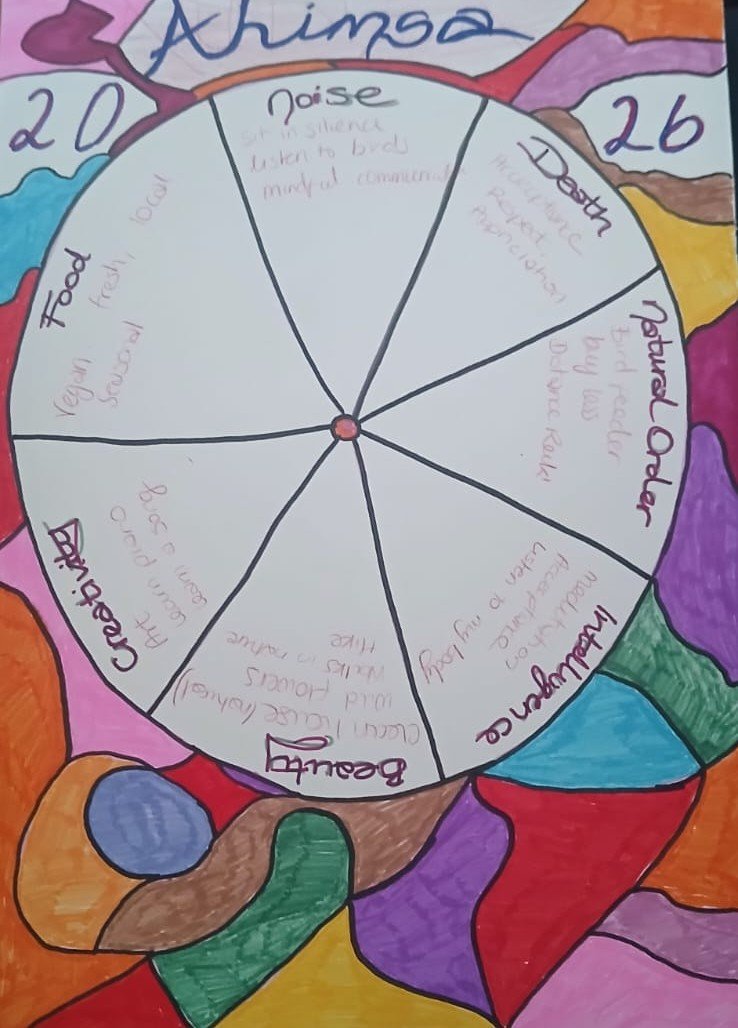 Ahimsa
20
26
Noise
sit in silience
listen to birds
mindful
Death
Acceptance
Respect
Natural Order
Bird feader
buy less
Distance Reiki
Intellugence
meditation
Acceptance
Listen to my body
Beauty
Clean house (natural)
Wild flowers
Walks in nature
Hike
Creativity
Art
Learn piano
learn a song
Food
fresh, local
Vegan
seasonal